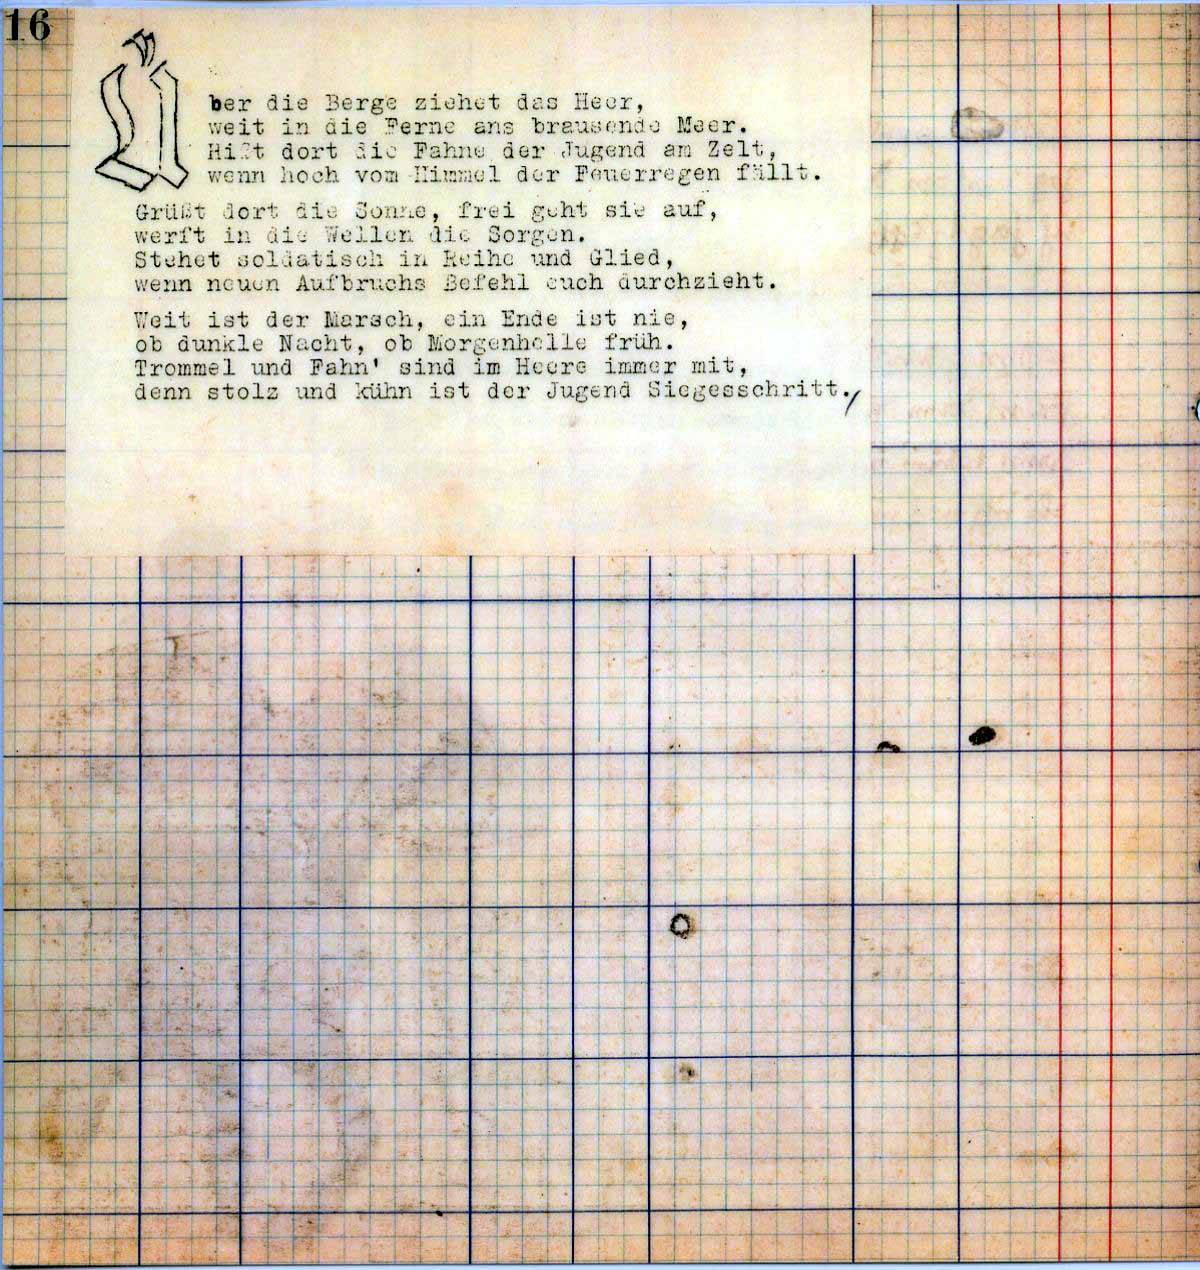 16
Über die Berge ziehet das Heer,
weit in die Ferne ans brausende Meer.
Hißt dort die Fahne der Jugend am Zelt,
wenn hoch vom Himmel der Feuerregen fällt.
Grüßt dort die Sonne, frei geht sie auf,
werft in die Wellen die Sorgen.
Stehet soldatisch in Reihe und Glied,
wenn neuen Aufbruchs Befehl euch durchzieht.
Weit ist der Marsch, ein Ende ist nie,
ob dunkle Nacht, ob Morgenhelle früh.
Trommel und Fahn' sind im Heere immer mit,
denn stolz und kühn ist der Jugend Siegesschritt.